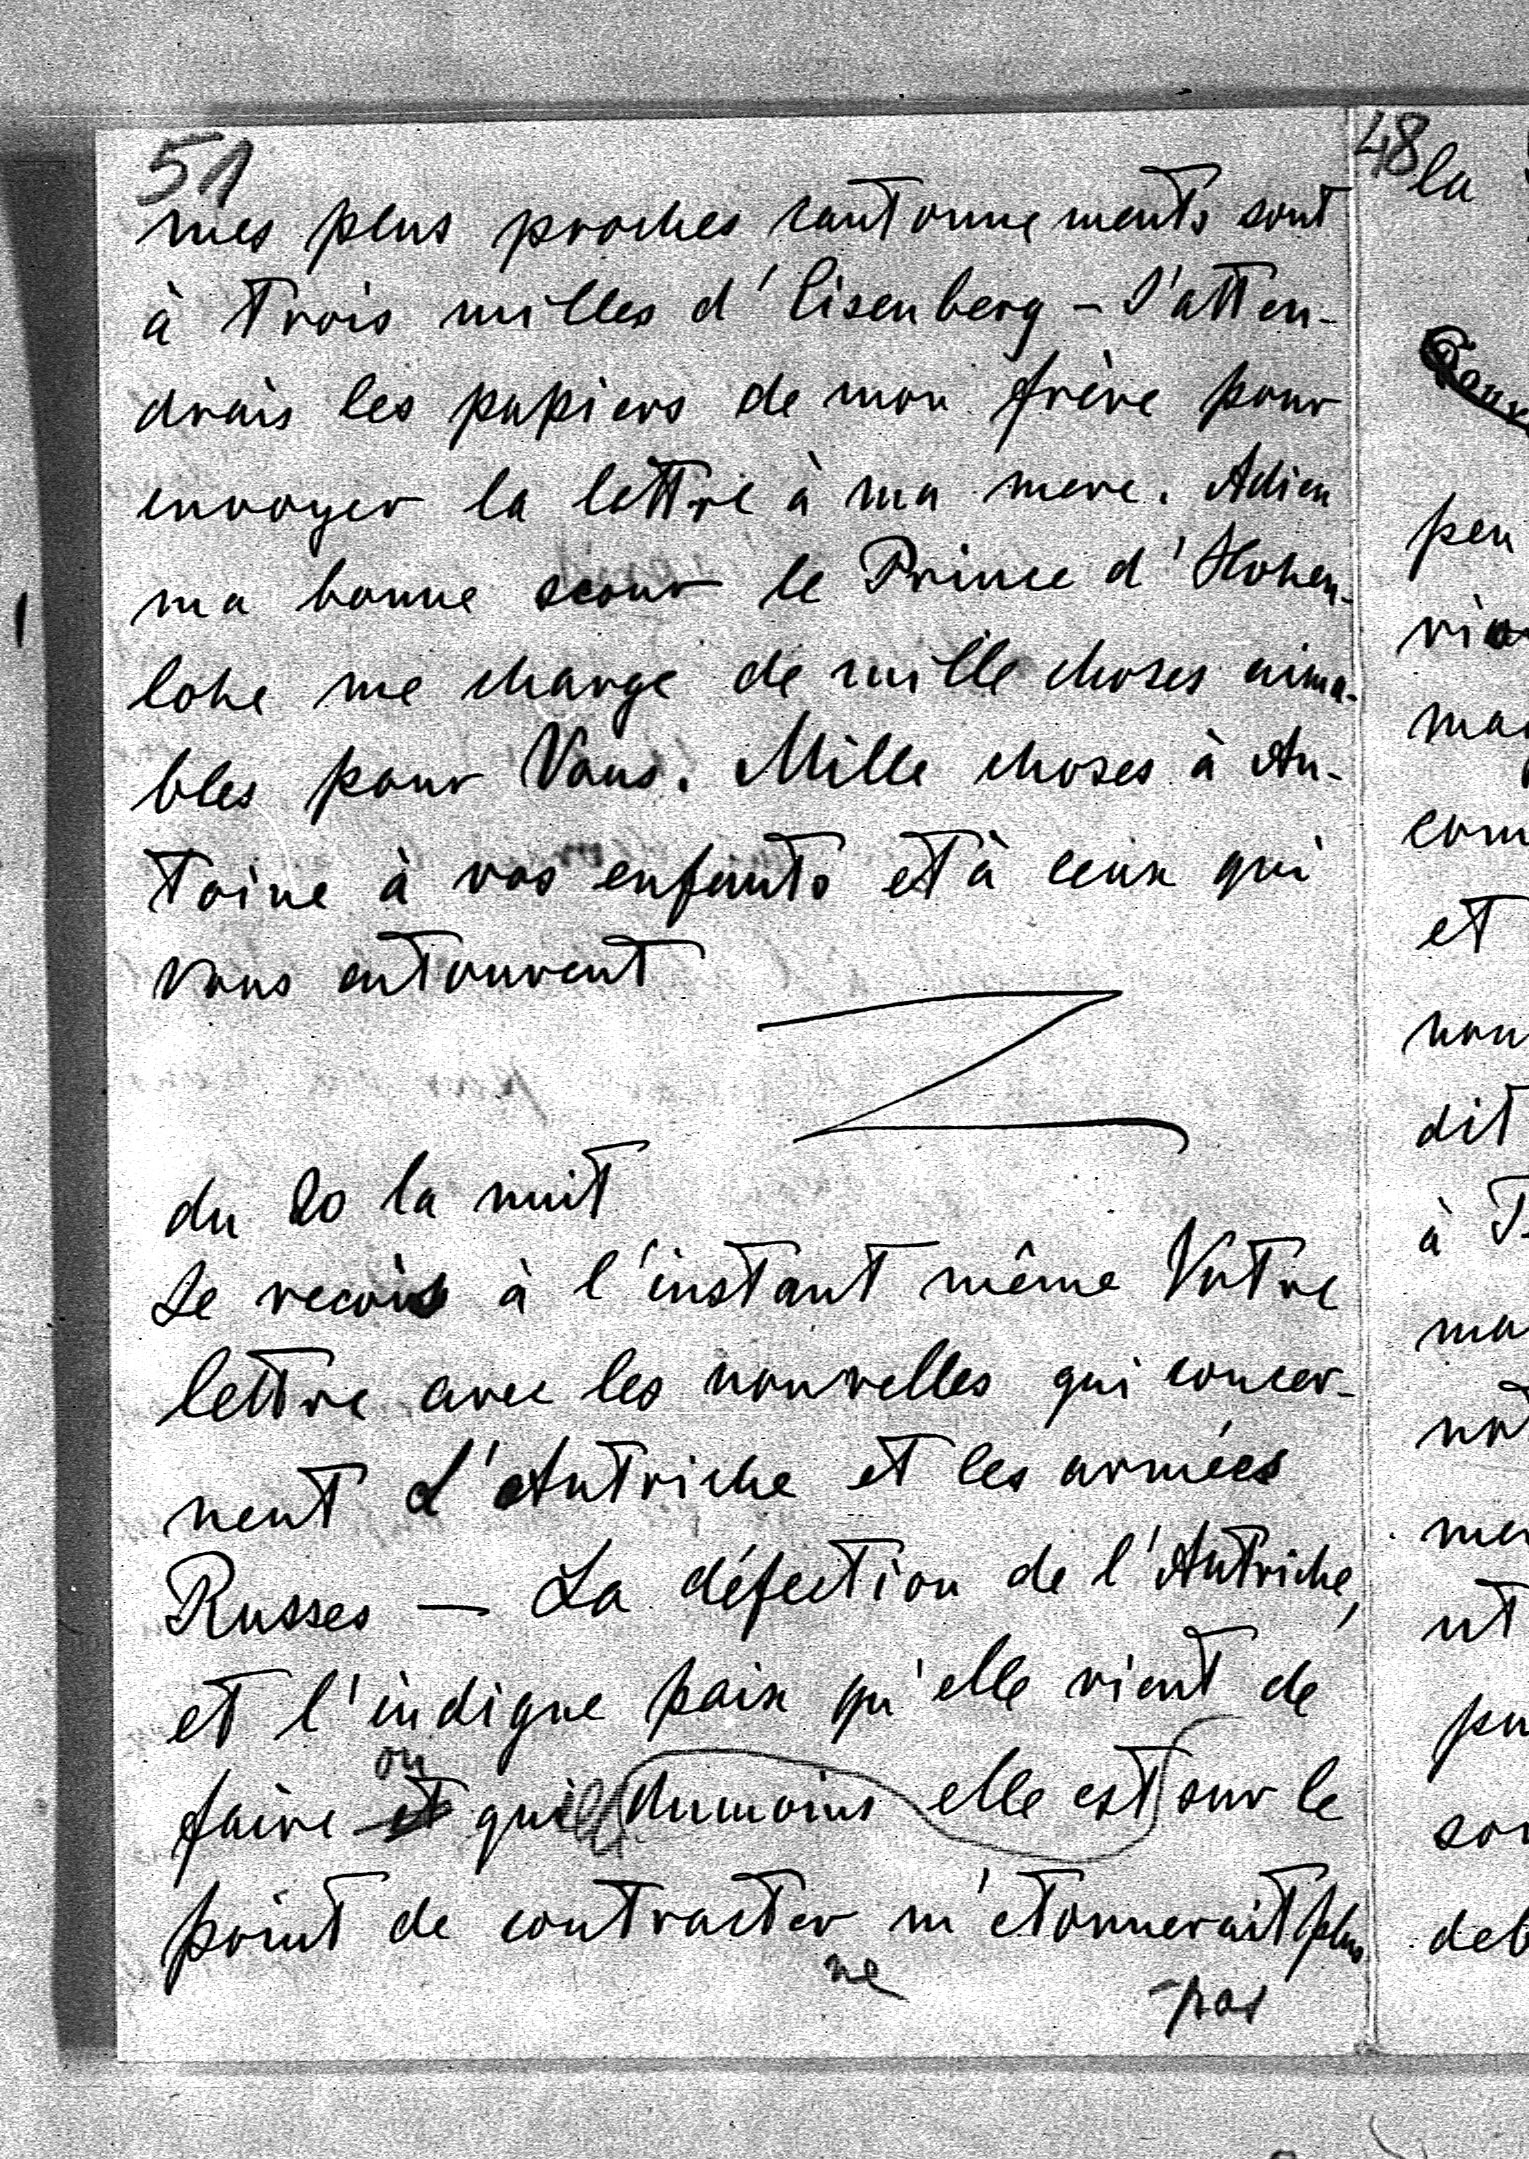 51
mes plus proches cantonnements sont
à trois milles d'Eisenberg - J'atten-
drais les papiers de mon frère pour
envoyer la lettre à ma mere. Adieu
ma bonne soeur le Prince d'Hohen-
lohe me charge de mille choses aima-
bles pour Vous. Mille choses à An-
toine à vos enfants et à ceux qui
vous entourent
du 20 la nuit
Je recois à l'instant même Votre
lettre avec les nouvelles qui concer-
nent L'Autriche et les armées
Russes — La défection de l'Autriche,
et l'indigne paix qu'elle vient de
ou
faire et qui dumoins elle est sur le
point de contracter m'étonnerait plus
ne -pas
48
la
peu
com
et
dit
à